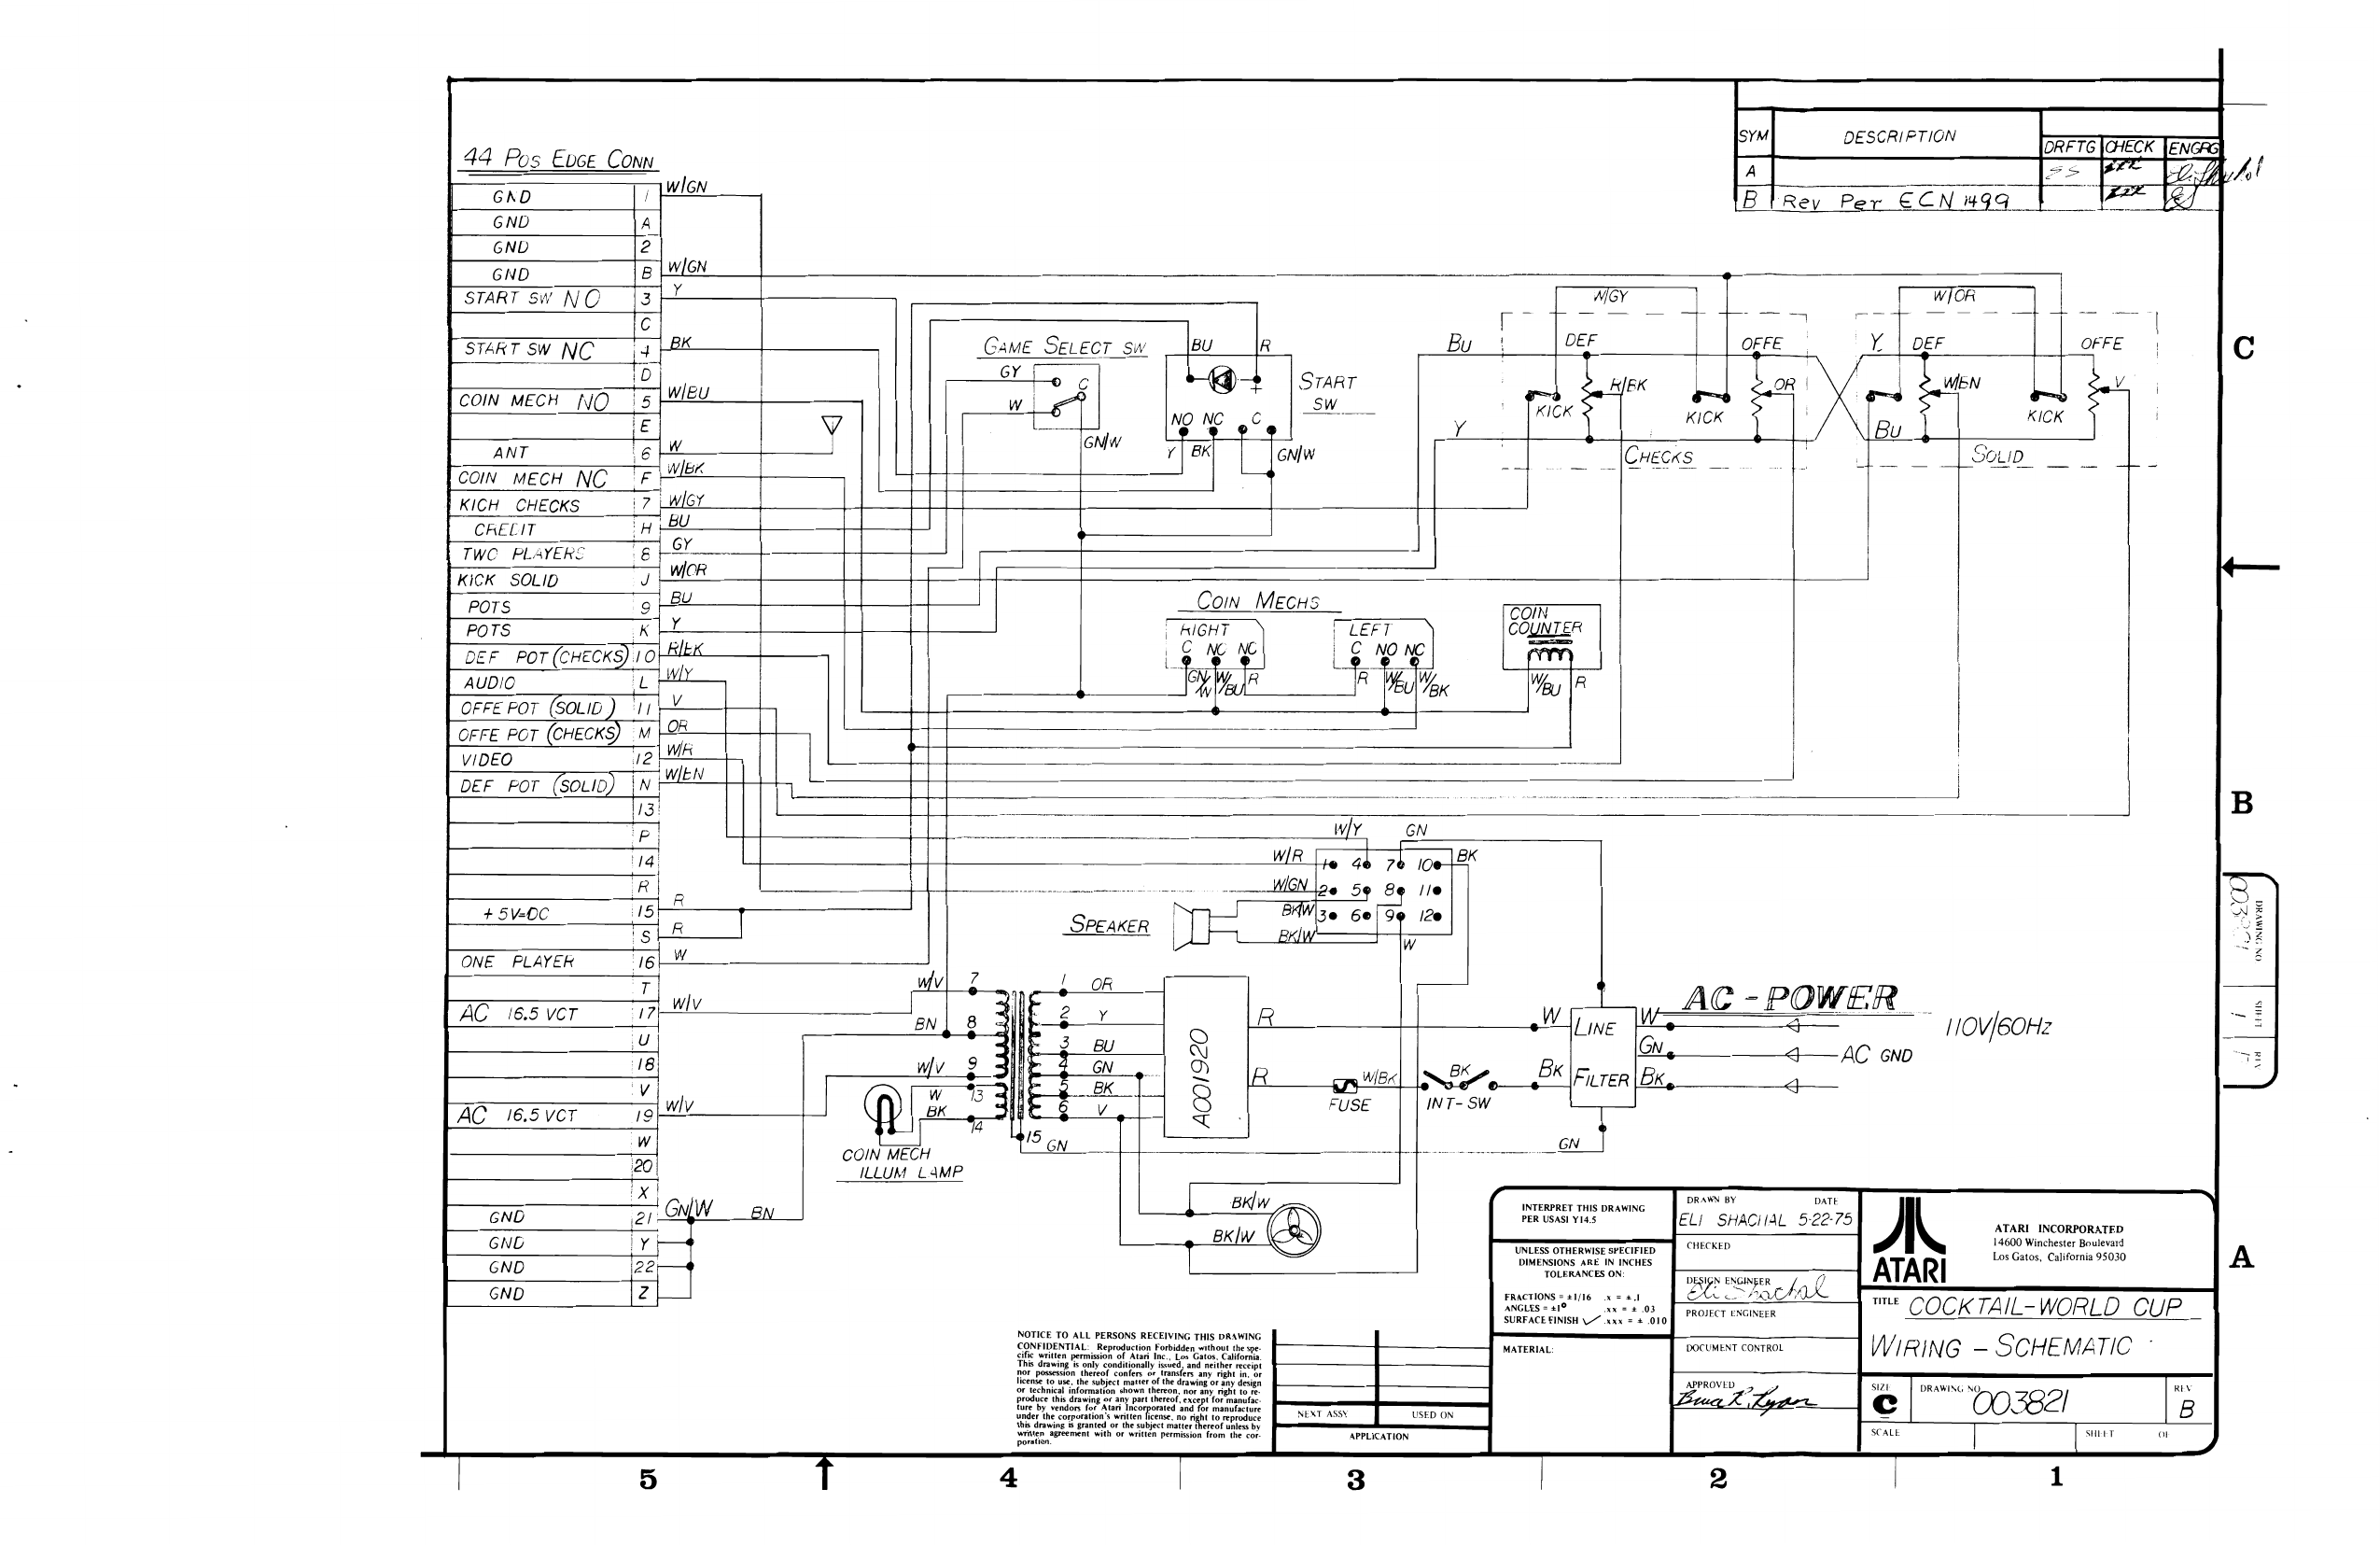 SYM DESCRIPTION DRFTG CHECK ENGRG
A
B Rev Per ECN 1499
44 POS EDGE CONN
GND 1 W/GN
GND A
GND 2
GND B W/GN
START SW NO 3 Y
C
START SW NC 4 BK
D
COIN MECH NO 5 W/BU
E
ANT 6 W
COIN MECH NC F W/BK
KICH CHECKS 7 W/GY
CREDIT H BU
TWO PLAYERS 8 GY
KICK SOLID J W/OR
POTS 9 BU
POTS K Y
DEF POT (CHECKS) 10 R/BK
AUDIO L W/Y
OFFE POT (SOLID) 11 V
OFFE POT (CHECKS) M OR
VIDEO 12 W/R
DEF POT (SOLID) N W/BN
13
P
14
R
+5V=DC 15 R
S R
ONE PLAYER 16 W
T
AC 16.5 VCT 17 W/V
U
18
V
AC 16.5 VCT 19 W/V
W
20
X
GND 21 GN/W BN
GND Y
GND 22
GND Z
GAME SELECT SW
GY
C
W
GN/W
BU R
+
START
SW
NO NC C
Y BK GN/W
W/GY
Bu DEF OFFE
R/BK OR
KICK KICK
Y
CHECKS
W/OR
Y DEF OFFE
W/BN V
KICK
Bu
SOLID
COIN MECHS
RIGHT
C NC NC
GN/W W/BU R
LEFT
C NO NC
R W/BU W/BK
COIN
COUNTER
W/BU R
W/Y GN
W/R 1 4 7 10 BK
W/GN 2 5 8 11
BK/W 3 6 9 12
BK/W W
SPEAKER
W/V 7
BN 8
W/V 9
W 13
BK 14
1 OR
2 Y
3 BU
4 GN
5 BK
6 V
15 GN
A001920
R
R
FUSE
W/BK
BK
INT-SW
W
Bk
LINE
FILTER
W
GN
BK
GN
AC-POWER
110V/60Hz
AC GND
COIN MECH
ILLUM LAMP
BK/W
BK/W
C
B
A
DRAWING NO
SHEET 1
REV
NOTICE TO ALL PERSONS RECEIVING THIS DRAWING
CONFIDENTIAL: Reproduction Forbidden without the spe-
cific written permission of Atari Inc., Los Gatos, California.
This drawing is only conditionally issued, and neither receipt
nor possession thereof confers or transfers any right in, or
license to use, the subject matter of the drawing or any design
or technical information shown thereon, nor any right to re-
produce this drawing or any part thereof, except for manufac-
ture by vendors for Atari Incorporated and for manufacture
under the corporation's written license, no right to reproduce
this drawing is granted or the subject matter thereof unless by
written agreement with or written permission from the cor-
poration.
NEXT ASSY USED ON
APPLICATION
INTERPRET THIS DRAWING
PER USASI Y14.5
UNLESS OTHERWISE SPECIFIED
DIMENSIONS ARE IN INCHES
TOLERANCES ON:
FRACTIONS = ±1/16 .x = ±.1
ANGLES = ±1° .xx = ± .03
SURFACE FINISH ✓ .xxx = ± .010
MATERIAL:
DRAWN BY DATE
ELI SHACHAL 5-22-75
CHECKED
DESIGN ENGINEER
Eli Shachal
PROJECT ENGINEER
DOCUMENT CONTROL
APPROVED
ATARI
ATARI INCORPORATED
14600 Winchester Boulevard
Los Gatos, California 95030
TITLE COCKTAIL-WORLD CUP
WIRING - SCHEMATIC
SIZE C
DRAWING NO. 003821
REV B
SCALE SHEET OF
5 4 3 2 1